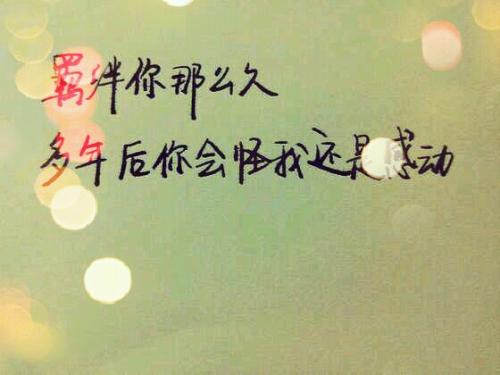 羁绊你那么久
多年后你会怪我还是感动